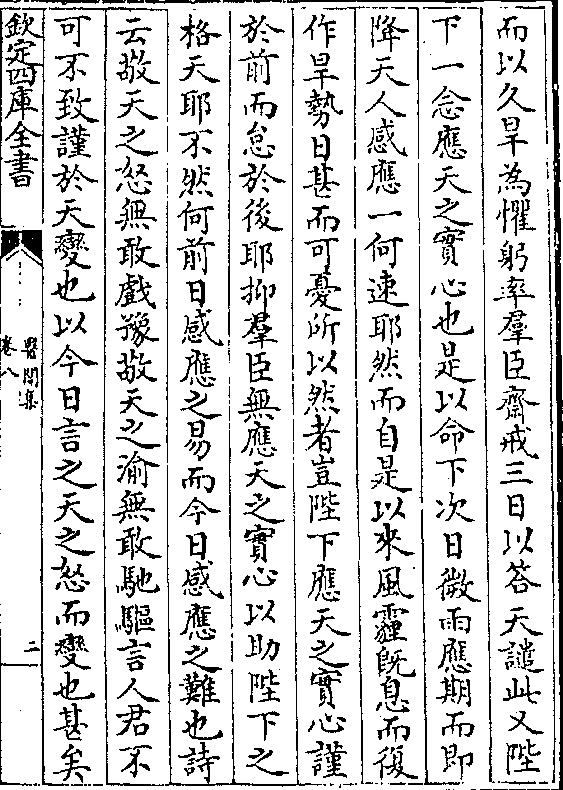 而以久旱為懼躬率羣臣齋戒三日以答天譴此又陛
下一念應天之實心也是以命下次日微雨應期而即
降天人感應一何速耶然而自是以來風霾既息而復
作旱勢日甚而可憂所以然者豈陛下應天之實心謹
於前而怠於後耶抑羣臣無應天之實心以助陛下之
格天耶不然何前日感應之易而今日感應之難也詩
云敬天之怒無敢戲豫敬天之渝無敢馳驅言人君不
可不致謹於天變也以今日言之天之怒而變也甚矣
欽定四庫全書
醫閭集
卷八
二